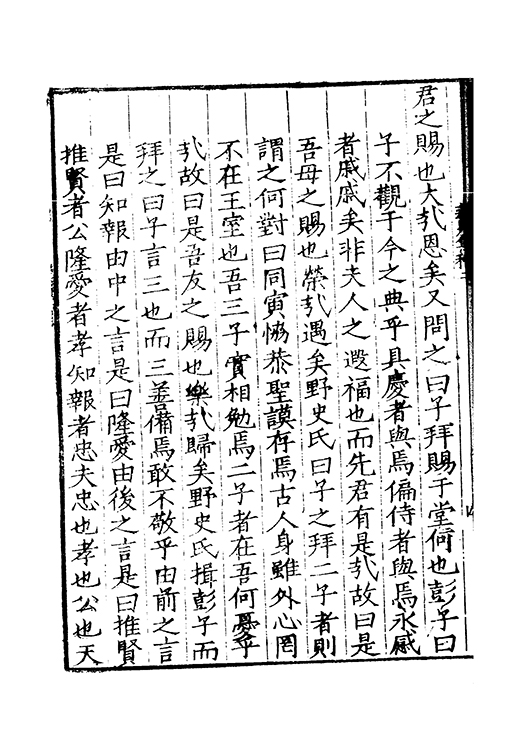 君之賜也大哉恩矣又問之曰子拜賜于堂何也彭子曰
子不觀于今之典乎具慶者與焉偏侍者與焉永感
者戚戚矣非夫人之遐福也而先君有是哉故曰是
吾母之賜也榮哉遇矣野史氏曰子之拜二子者則
謂之何對曰同寅恊恭聖謨存焉古人身雖外心罔
不在王室也吾三子實相勉焉二子者在吾何憂乎
哉故曰是吾友之賜也樂哉歸矣野史氏揖彭子而
拜之曰子言三也而三善備焉敢不敬乎由前之言
是曰知報由中之言是曰隆愛由後之言是曰推賢
推賢者公隆愛者孝知報者忠夫忠也孝也公也天